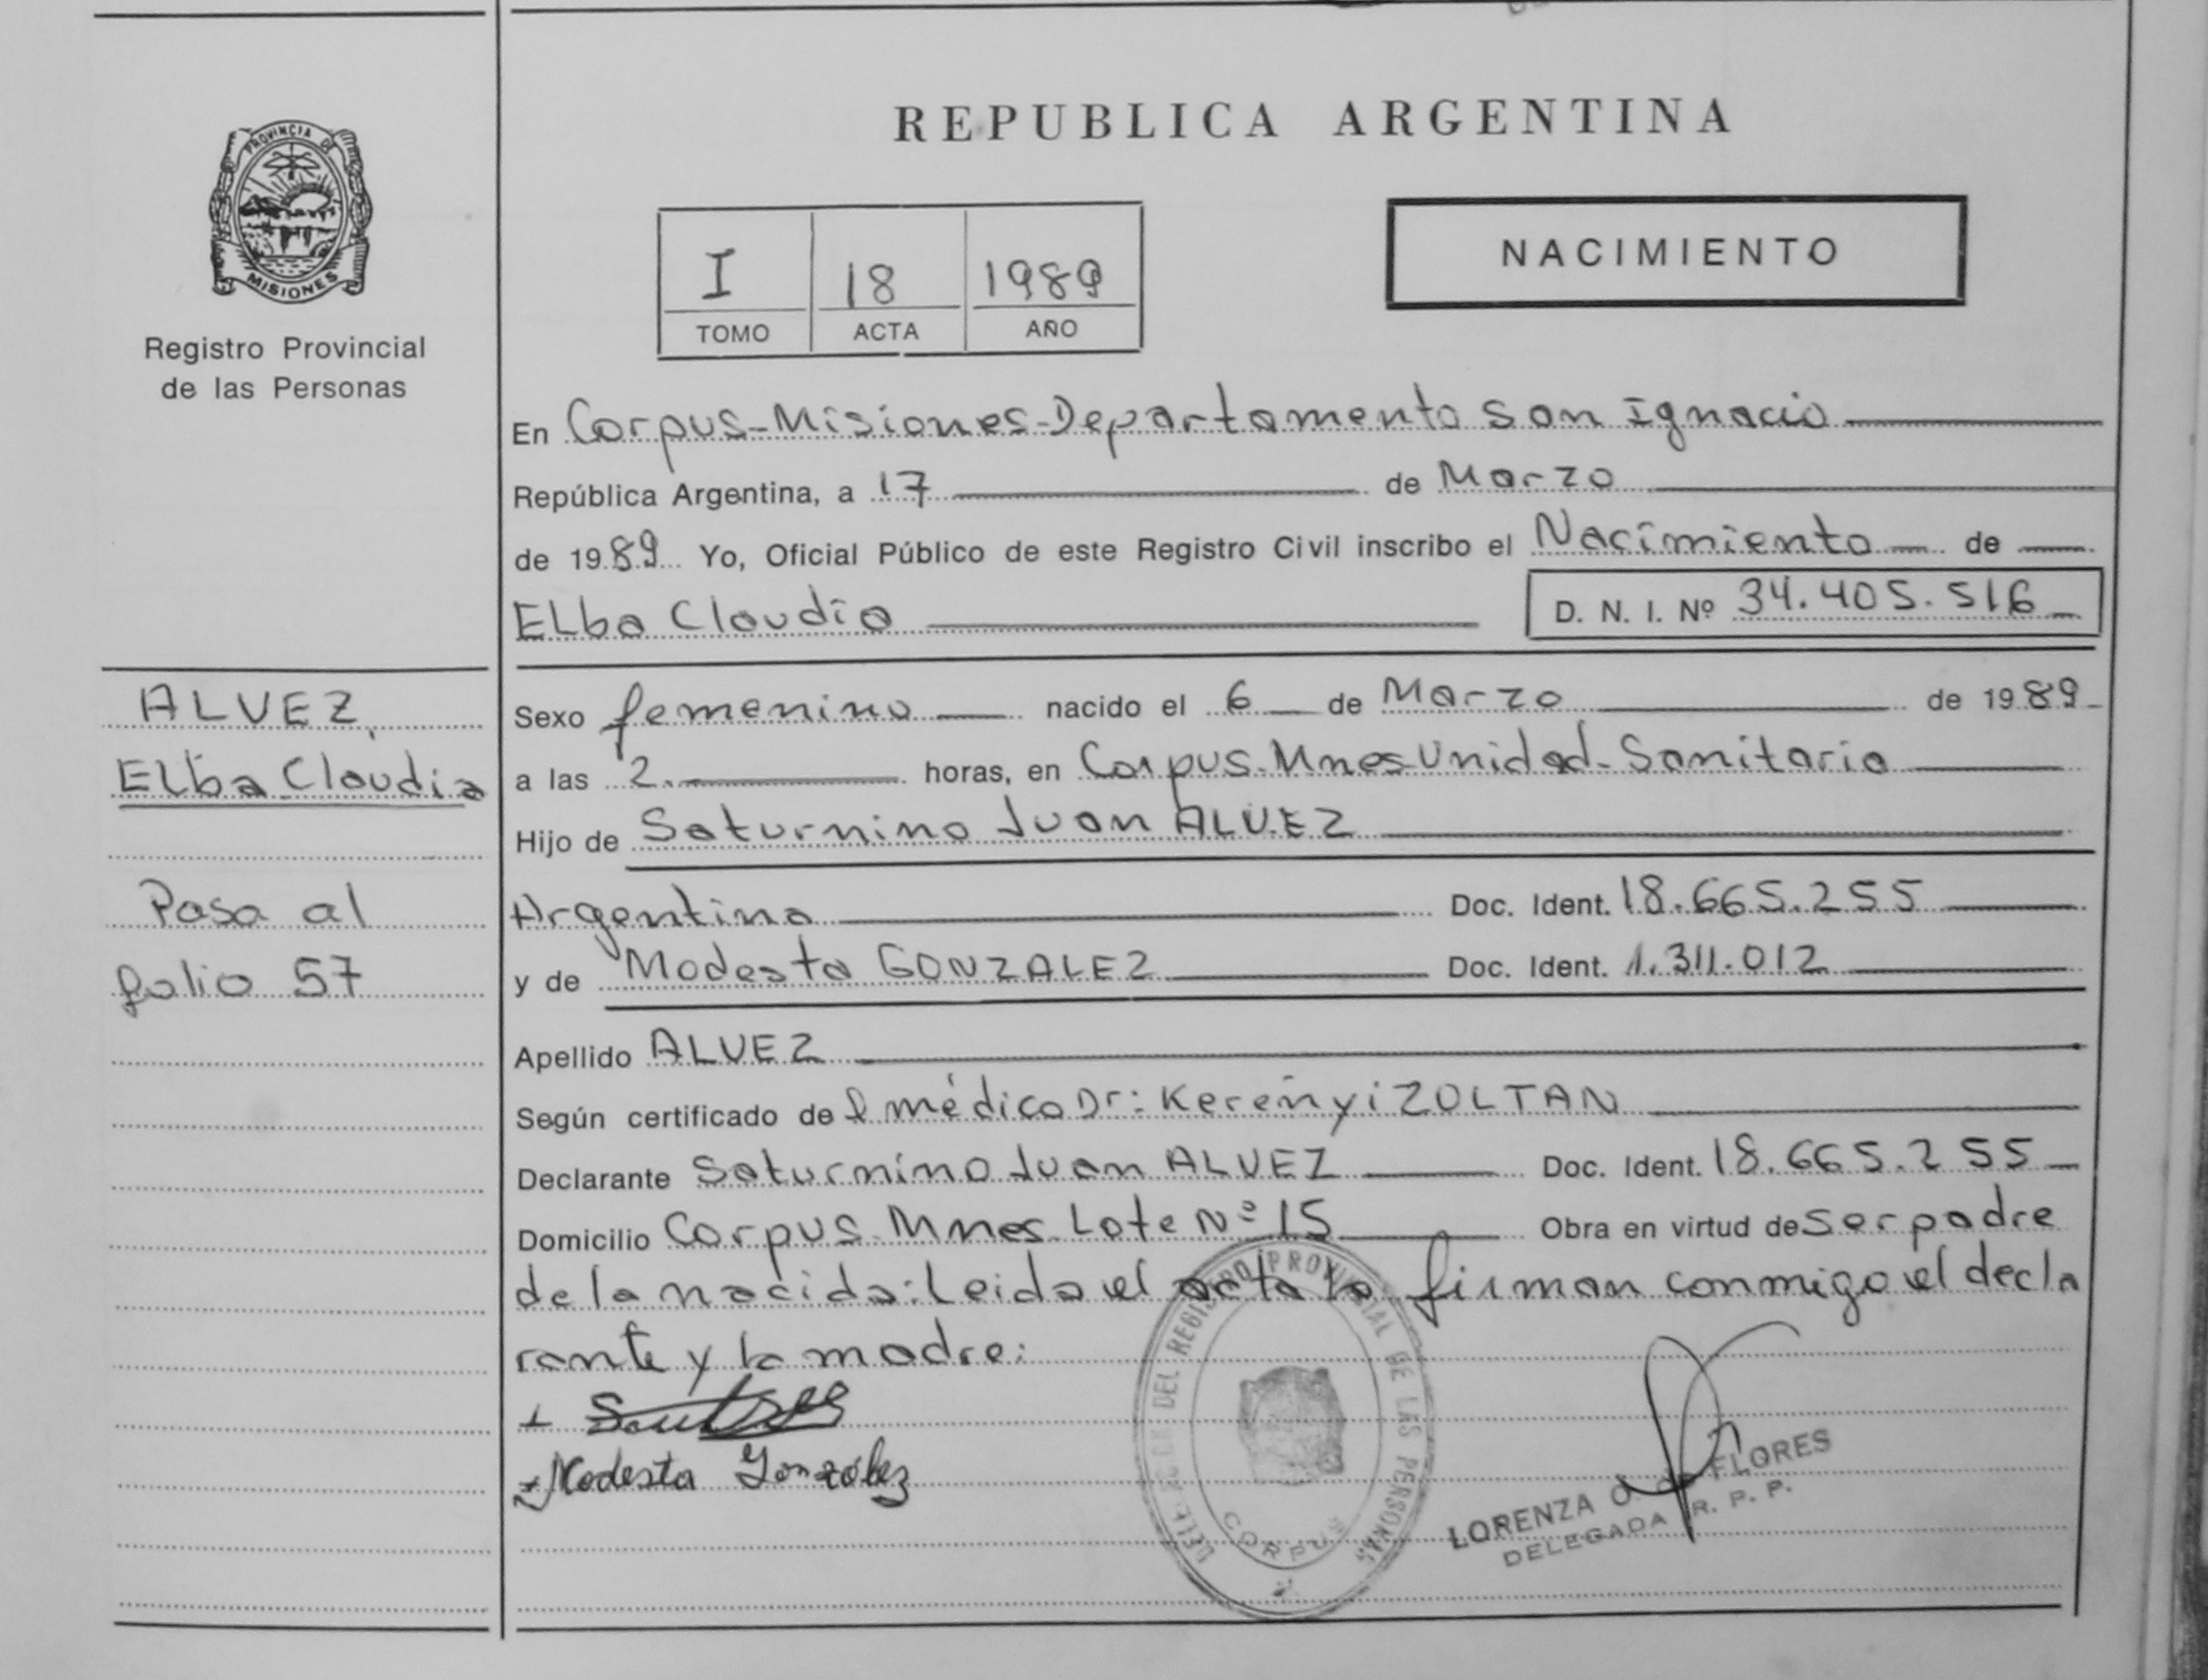 PROVINCIA DE
MISIONES
Registro Provincial
de las Personas
ALVEZ
Elba Claudia
Pasa al
folio 57
REPUBLICA ARGENTINA
I 18 1989
TOMO ACTA AÑO
NACIMIENTO
En Corpus-Misiones-Departamento San Ignacio
República Argentina, a 17 de Marzo
de 1989 Yo, Oficial Público de este Registro Civil inscribo el Nacimiento de
Elba Claudia D. N. I. Nº 34.405.516
Sexo femenino nacido el 6 de Marzo de 1989
a las 2. horas, en Corpus-Mnes Unidad-Sanitaria
Hijo de Saturnino Juan ALVEZ
Argentino Doc. Ident. 18.665.255
y de Modesta GONZALEZ Doc. Ident. 1.311.012
Apellido ALVEZ
Según certificado de l médico Dr: Kerenyi ZOLTAN
Declarante Saturnino Juan ALVEZ Doc. Ident. 18.665.255
Domicilio Corpus-Mnes-Lote Nº 15 Obra en virtud de ser padre
de la nacida: Leida el acta la firman conmigo el decla
rante y la madre:
Modesta González
DEL REGISTRO PROVINCIAL DE LAS PERSONAS
CORPUS
LORENZA O. de FLORES
DELEGADA R. P. P.